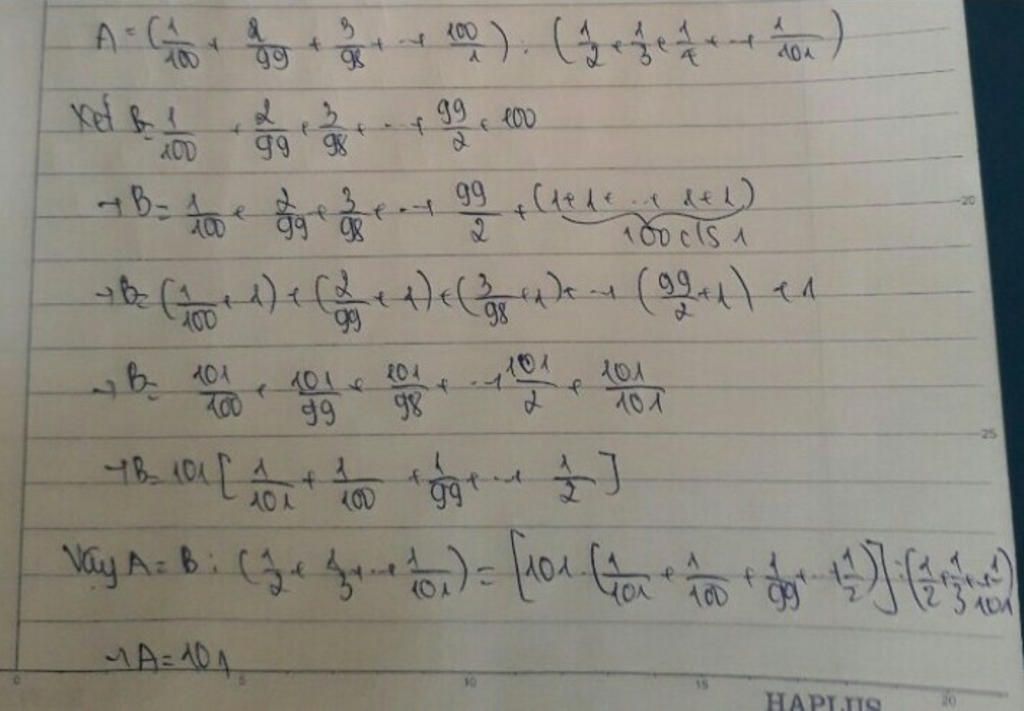 A = (1/100 + 2/99 + 3/98 + ... + 100/1) : (1/2 + 1/3 + 1/4 + ... + 1/101)
Xét B = 1/100 + 2/99 + 3/98 + ... + 99/2 + 100
→ B = 1/100 + 2/99 + 3/98 + ... + 99/2 + (1 + 1 + ... + 1 + 1)
100 c/s 1
20
→ B = (1/100 + 1) + (2/99 + 1) + (3/98 + 1) + ... + (99/2 + 1) + 1
→ B = 101/100 + 101/99 + 101/98 + ... + 101/2 + 101/101
25
→ B = 101 [1/101 + 1/100 + 1/99 + ... + 1/2]
Vậy A = B : (1/2 + 1/3 + ... + 1/101) = [101 . (1/101 + 1/100 + 1/99 + ... + 1/2)] : (1/2 + 1/3 + ... + 1/101)
→ A = 101
0 5 10 15 20
HAPLUS